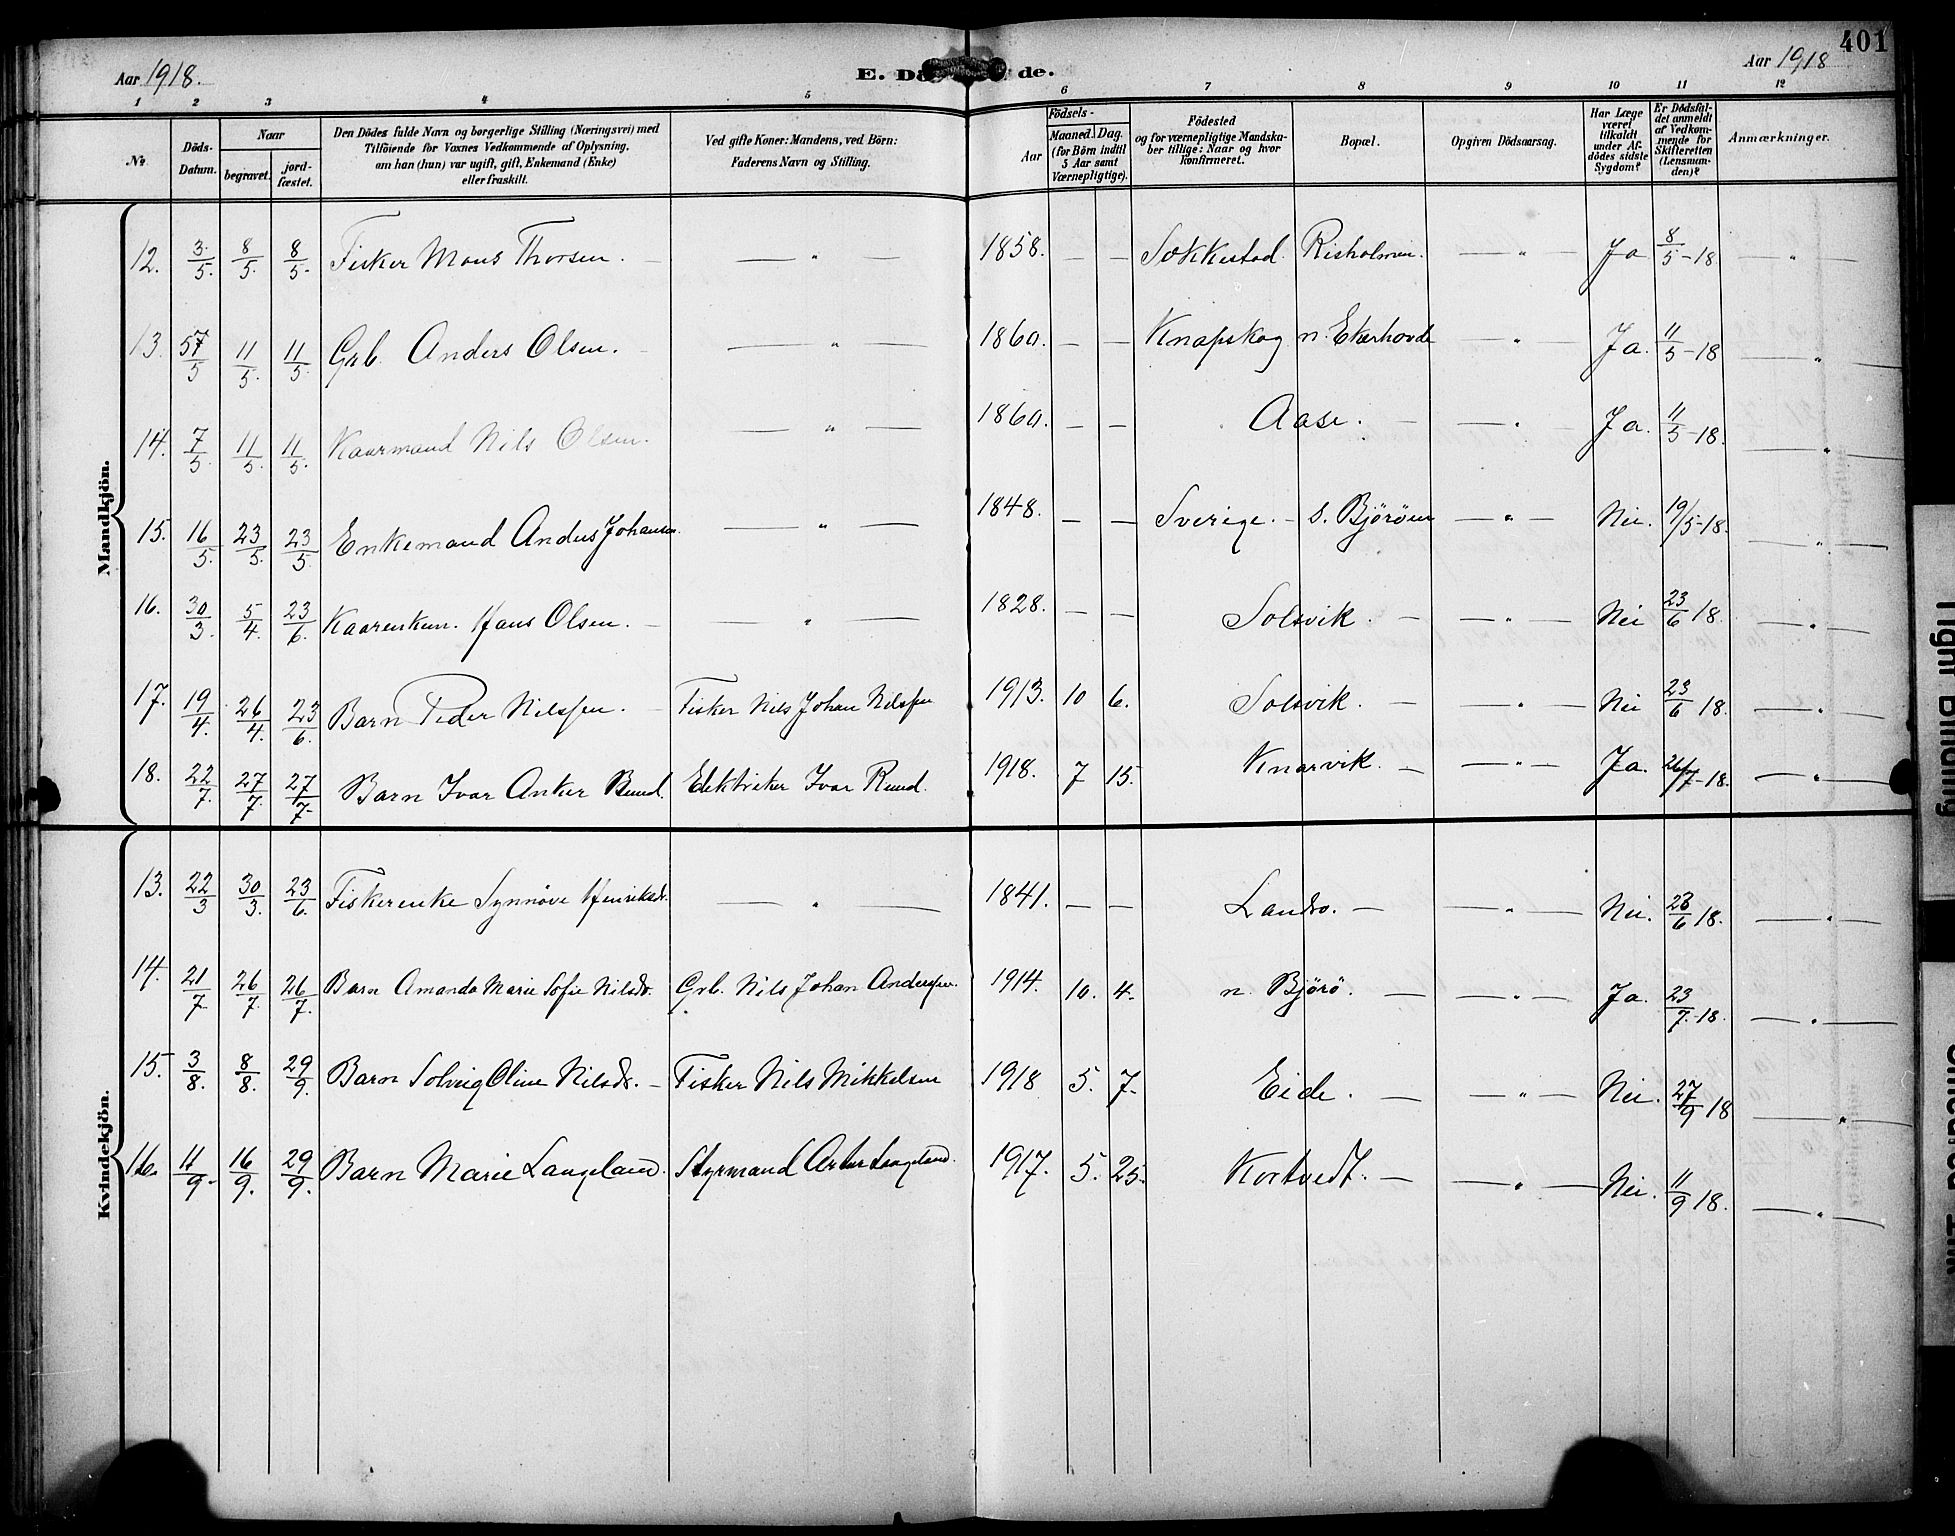 401
Aar 1918.
E. Dö de.
Aar 1918
1 2 3 4 5 6 7 8 9 10 11 12
No
Döds-Datum.
Naar
begravet.
jordfæstet.
Den Dödes fulde Navn og borgerlige Stilling (Næringsvei) med
Tilföiende for Voxnes Vedkommende af Oplysning,
om han (hun) var ugift, gift, Enkemand (Enke)
eller fraskilt.
Ved gifte Koner: Mandens, ved Börn:
Faderens Navn og Stilling.
Födsels-
Aar
Maaned. Dag.
(for Börn indtil
5 Aar samt
Værnepligtige).
Födested
og for værnepligtige Mandska-
ber tillige: Naar og hvor
Konfirmeret.
Bopæl.
Opgiven Dödsaarsag.
Har Læge
været
tilkaldt
under Af-
dödes sidste
Sygdom?
Er Dödsfal-
det anmeldt
af Vedkom-
mende for
Skifteretten
(Lensman-
den)?
Anmærkninger.
Mandkjön.
12. 3/5. 8/5. 8/5. Fisker Mons Thorsen. — " — 1858. — — Sækkestad. Risholmen. — " — Ja 8/5-18 — " —
13. 7/5 11/5. 11/5. Grb. Anders Olsen. — " — 1860. — — Knapskog n. Ekerhovde — " — Ja. 11/5-18 — " —
14. 7/5. 11/5. 11/5. Kaarmand Nils Olsen. — " — 1860. — — Aase. — " — Ja. 11/5-18. — " —
15. 16/5. 23/5. 23/5. Enkemand Anders Johansen. — " — 1848. — — Sverige. - s. Björöen — " — Nei. 19/5-18. — " —
16. 30/3. 5/4. 23/6. Kaarenkem. Hans Olsen. — " — 1828. — — Solsvik. — " — Nei 23/6 18. — " —
17. 19/4. 26/4. 23/6. Barn Peder Nilssen. Fisker Nils Johan Nilssen 1913. 10 6. Solsvik. — " — Nei 23/6 18. — " —
18. 22/7. 27/7. 27/7. Barn Ivar Anker Ruud. Elektriker Ivar Ruud. 1918. 7 15. Knarvik. — " — Ja. 26/7-18. — " —
Kvindekjön.
13. 22/3 30/3. 23/6. Fiskerenke Synnöve Henriksdr. — " — 1841. — — Landro. — " — Nei. 23/6 18. — " —
14. 21/7. 26/7. 26/7. Barn Amanda Marie Sofie Nilsdr. Grb. Nils Johan Anderssen. 1914. 10. 4. n. Björö. — " — Ja. 23/7.-18. — " —
15. 3/8. 8/8. 29/9. Barn Solveig Oline Nilsdr. — Fisker Nils Mikkelsen 1918 5. 7. Eide. — " — Nei. 27/9 18 — " —
16. 11/9. 16/9. 29/9. Barn Marie Langeland. Styrmand Langeland. 1917. 5. 25. Kortvedt. — " — Nei. 11/9 18. — " —